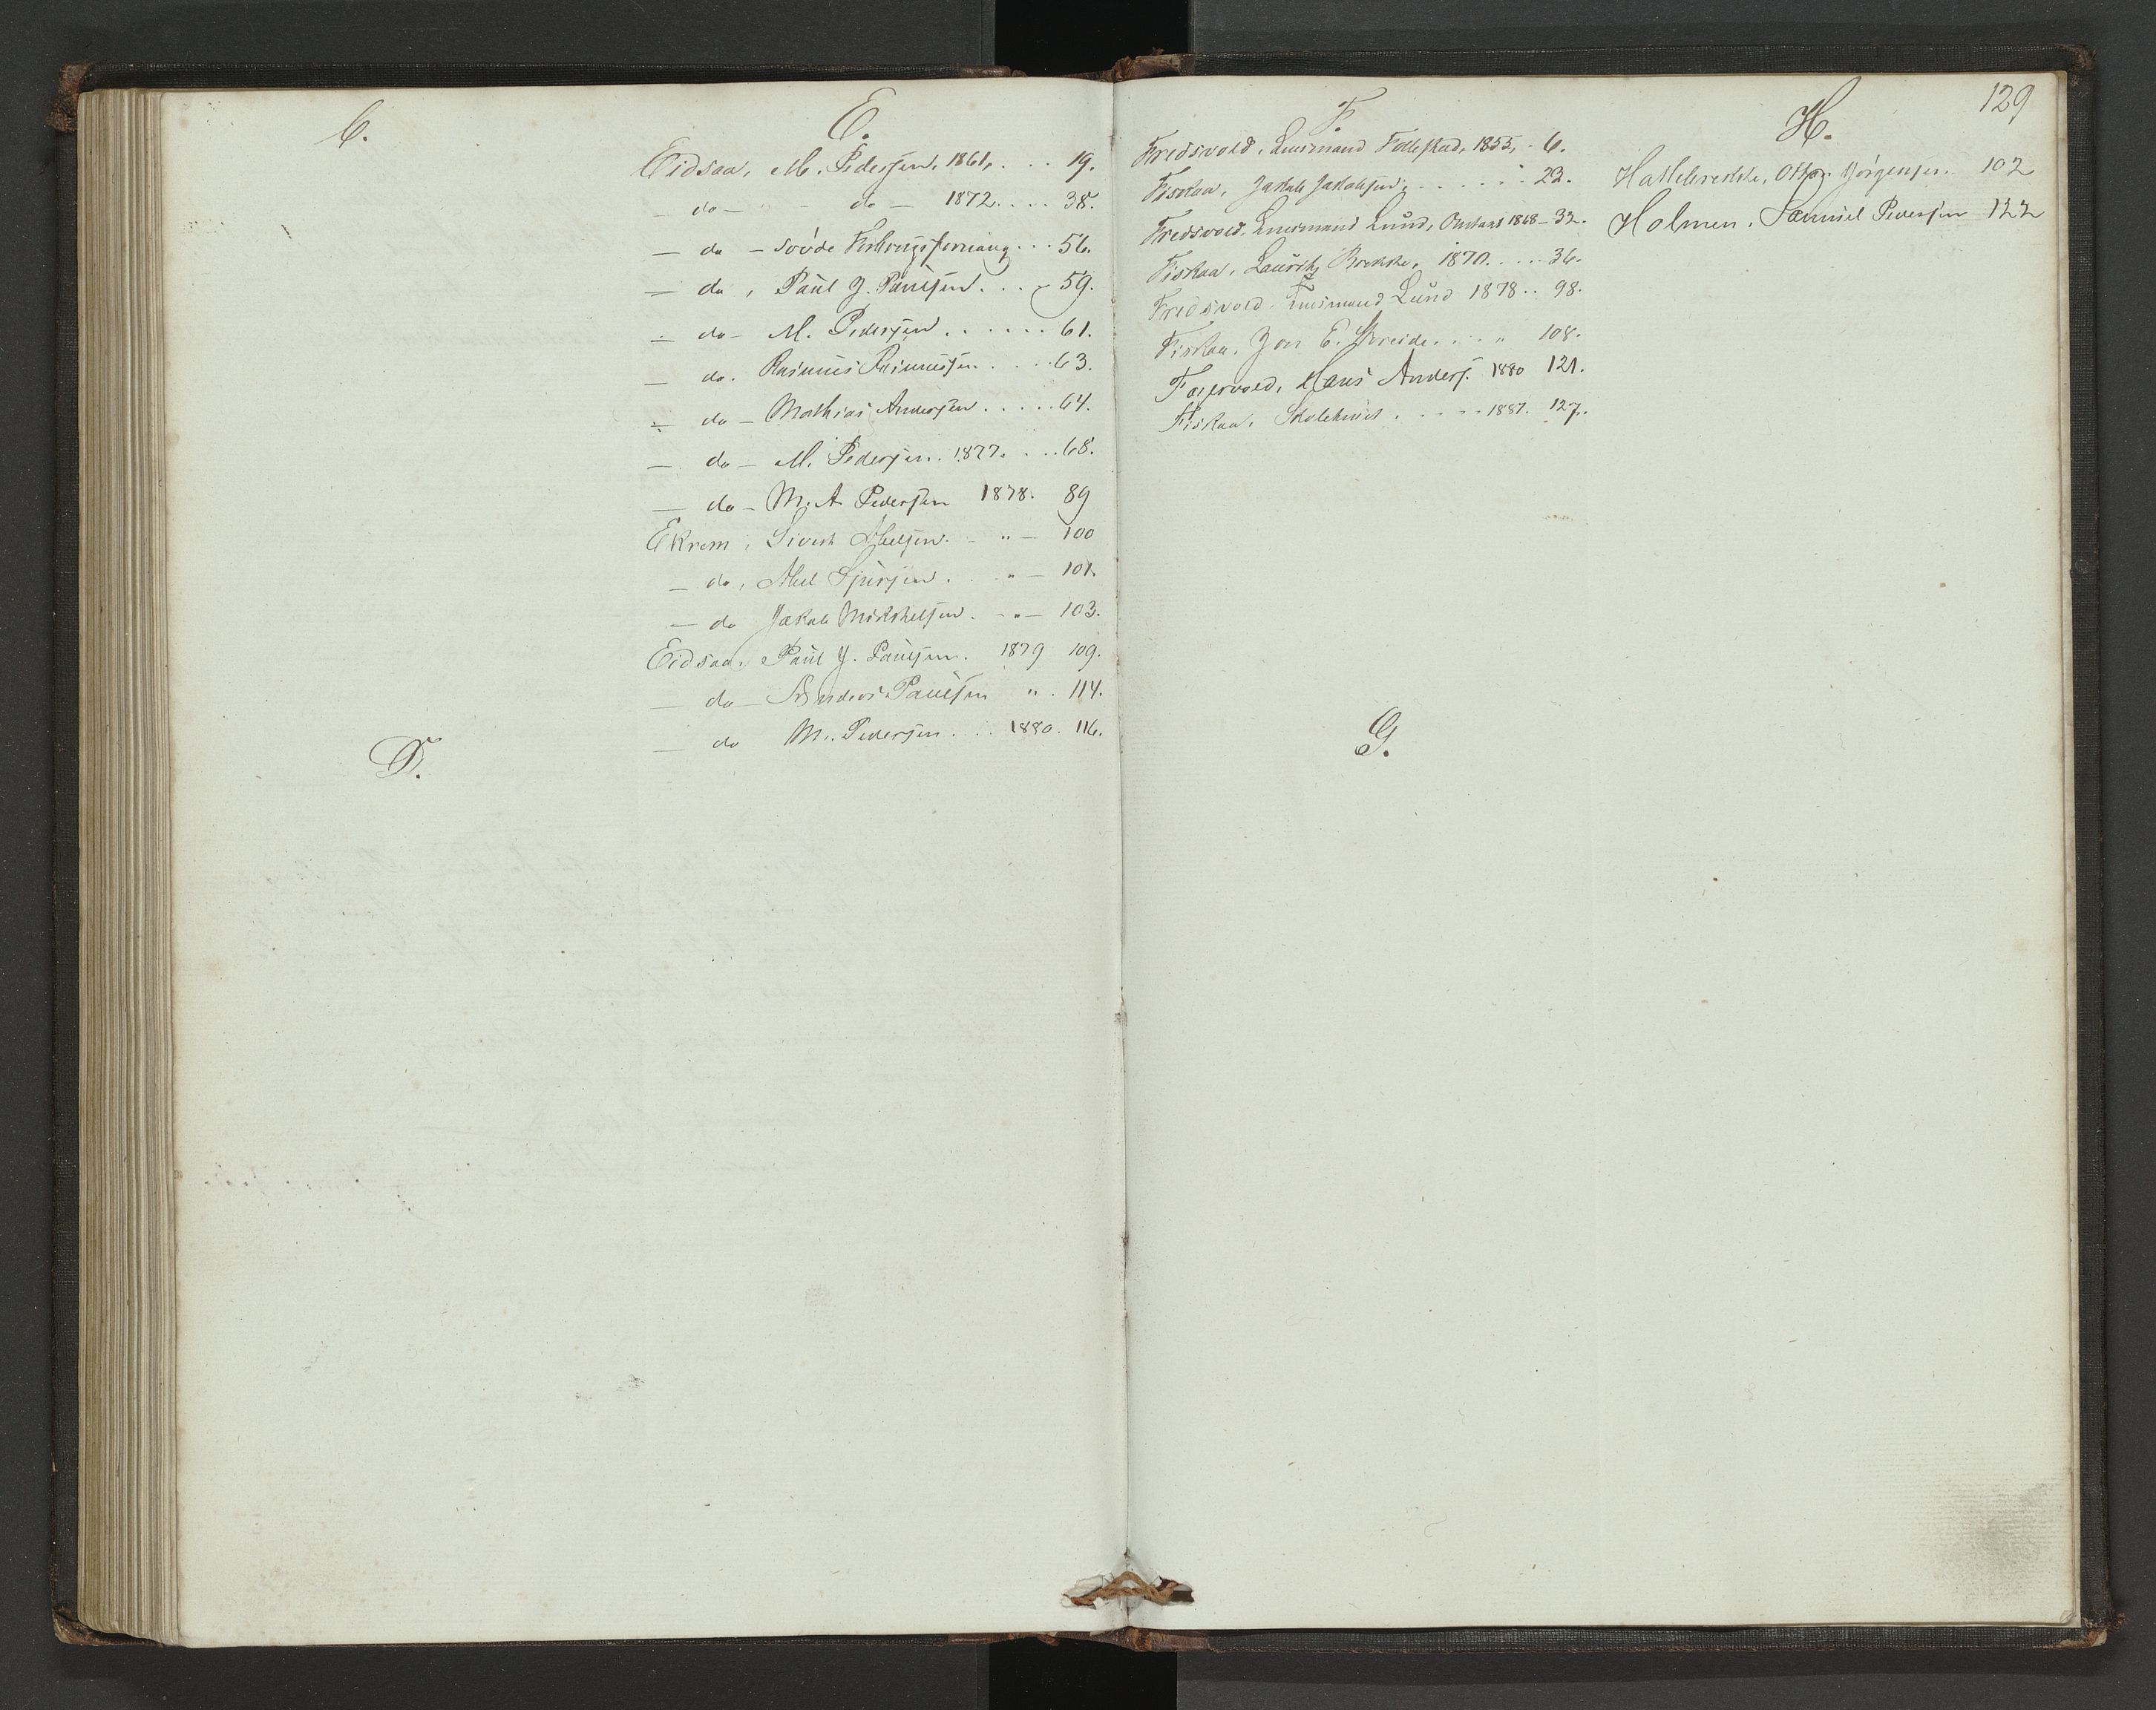 C.
D.
E.
Eidsaa, M. Pedersen, 1861, . . . 19.
— do — " - do — 1872. . . . 38.
— do — Søvde Forlovigsfor . . . 56.
— do , Paul J. Paulsen. . . . 59.
— do — M. Pedersen . . . . . . 61.
— do. Rasmus Rasmussen . . . . 63.
— do — Mathias Andersen . . . . . 64.
— do — M. Pedersen. 1877. . . . 68.
— do — M. A Pedersen 1878. 89
Ekrem, Sivert Abelsen. - " — 100
— do, Abel Sjursen . . " — 101.
— do Jakob Mikkelsen. - " — 103.
Eidsaa, Paul J. Paulsen. 1879 109.
— do — Anders Paulsen " . 114.
— do M. Pedersen . . . 1880. 116.
129
F.
Fredsvold, Lensmand Follestad, 1855, . 6.
Fiskaa, Jakob Jakobsen, . . . . . . 23.
Fredsvold, Lensmand Lund, 1868 - 32.
Fiskaa, Lauritz Brekke, 1870. . . . . 36.
Fredsvold. Lensmand Lund 1878 . . 98.
Fiskaa, Jon E. Skreide. . . . " 108.
Fagervold, Hans Anders. 1880 121.
Fiskaa, Skolekreds . . . . . 1881. 127.
G.
H.
Hallebrekke, Jørgensen 102
Holmen, Samuel Pedersen 122